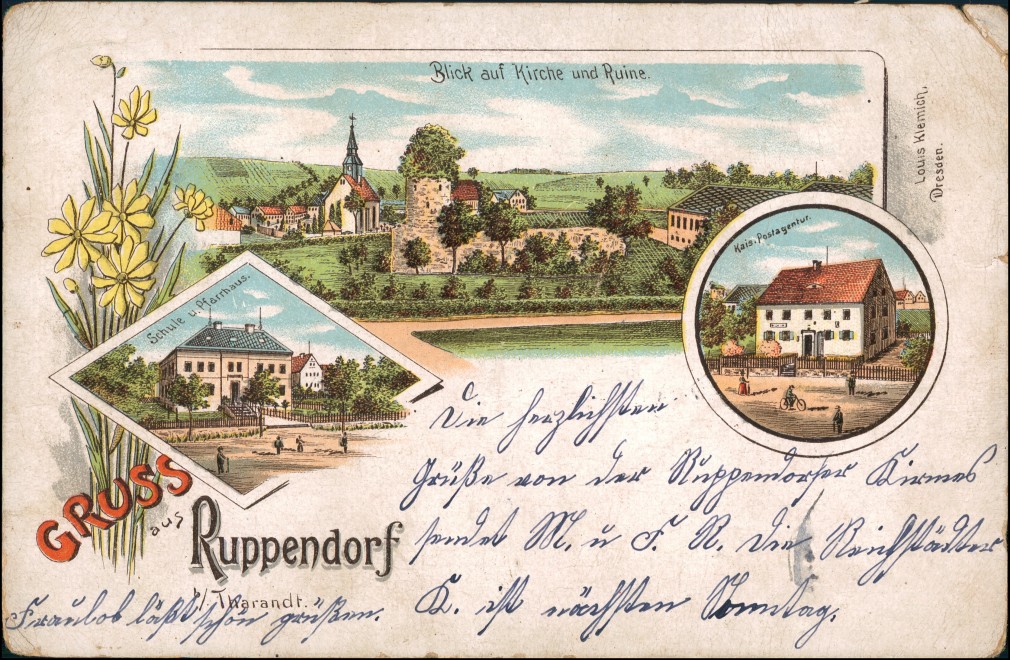 Blick auf Kirche und Ruine.
Louis Klemich,
Dresden.
Kais. Postagentur.
Schule u. Pfarrhaus.
GRUSS
aus
Ruppendorf
b/. Tharandt.
Die herzlichsten
Grüße von der Ruppendorfer Kirmes
sendet M. u F. R. Die Reichstädter
K. ist nächsten Sonntag.
läßt schön grüßen.